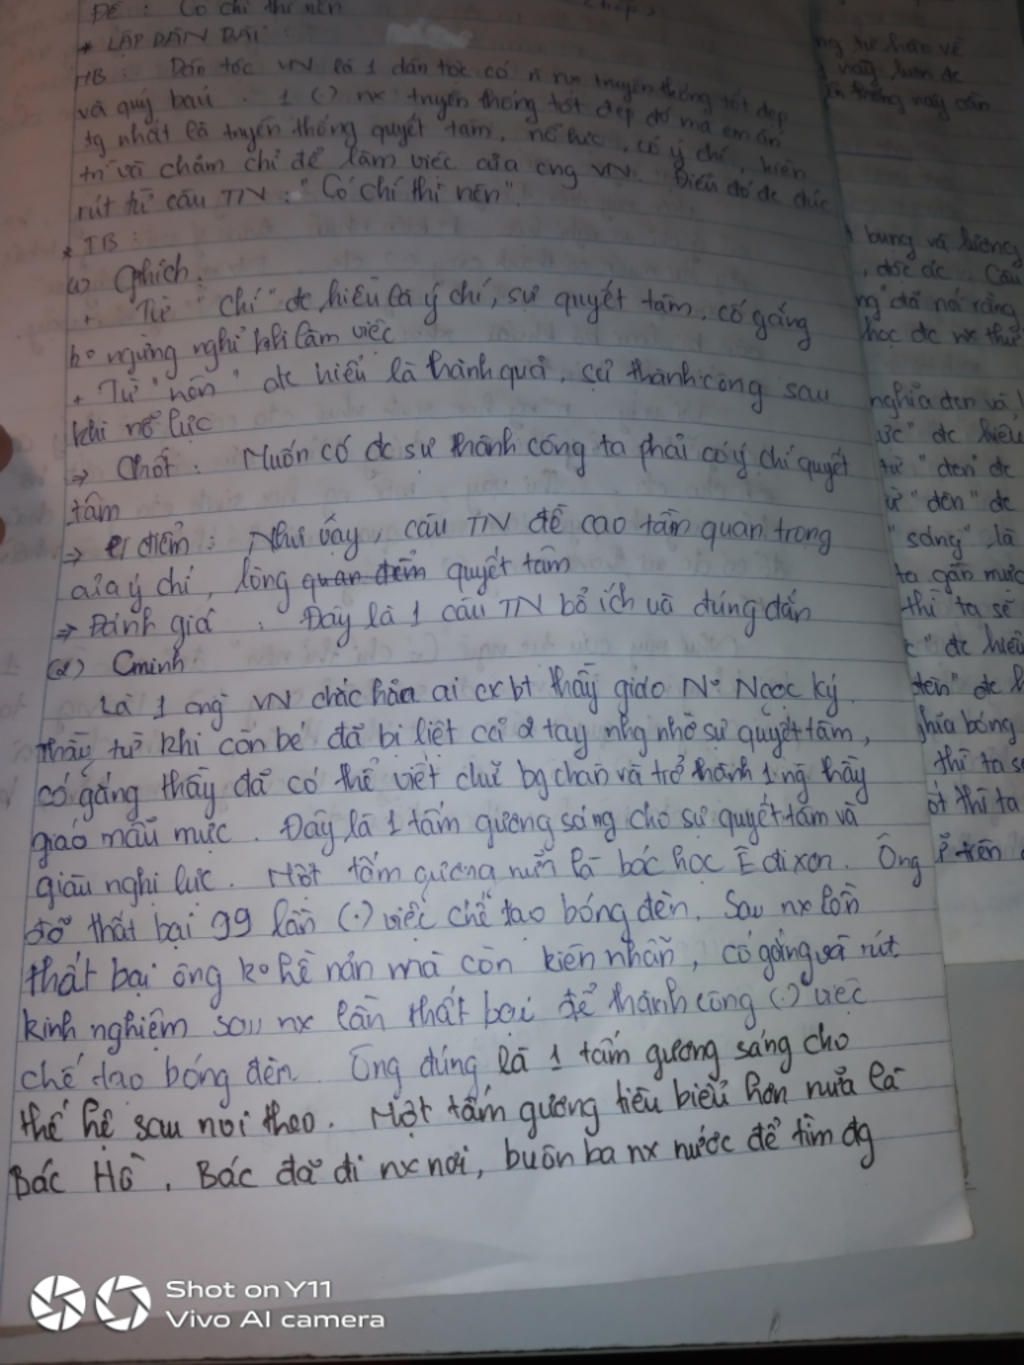 Đề : Có chí thì nên
* LẬP DÀN BÀI :
MB : Dân tộc VN là 1 dân tộc có n nx truyền thống tốt đẹp
và quý báu . 1 (.) nx truyền thống tốt đẹp đó mà em ấn
tg nhất là truyền thống quyết tâm, nỗ lực, có ý chí, kiên
trì và chăm chỉ để làm việc của cng VN. Điều đó đc đúc
rút từ câu TN : "Có chí thì nên".
* TB :
Gthích :
+ Từ "chí" đc hiểu là ý chí, sự quyết tâm, cố gắng
ko ngừng nghỉ khi làm việc
+ Từ "nên" đc hiểu là thành quả, sự thành công sau
khi nỗ lực
=> Chốt : Muốn có đc sự thành công ta phải có ý chí quyết
tâm
=> điểm : Như vậy, câu TN đề cao tầm quan trọng
của ý chí, lòng quan điểm quyết tâm
=> Đánh giá : Đây là 1 câu TN bổ ích và đúng đắn
(2) Cminh
Là 1 cng VN chắc hẳn ai cx bt thầy giáo No Ngọc Ký.
Thầy từ khi còn bé đã bị liệt cả 2 tay nhg nhờ sự quyết tâm,
cố gắng thầy đã có thể viết chữ bg chân và trở thành 1 ng thầy
giáo mẫu mực . Đây là 1 tấm gương sáng cho sự quyết tâm và
giàu nghị lực . Một tấm gương nữa là bác học Ê đi xơn. Ông
đã thất bại 99 lần (.) việc chế tạo bóng đèn. Sau nx lần
thất bại ông ko hề nản mà còn kiên nhẫn, cố gắng và rút
kinh nghiệm sau nx lần thất bại để thành công (.) việc
chế tạo bóng đèn. Ông đúng là 1 tấm gương sáng cho
thế hệ sau noi theo. Một tấm gương tiêu biểu hơn nữa là
Bác Hồ . Bác đã đi nx nơi, buôn ba nx nước để tìm đg
ng tự hào về
này luôn đc
thống này cần
bụng và lương
, độc ác. Câu
ng" đã nói rằng
học đc nx thứ
nghĩa đen và
ực" đc hiểu
từ "đen" đc
"đèn" đc
"sáng" là
ta gần mực
thì ta sẽ
c" đc hiểu
đèn" đc
nghĩa bóng
thì ta sẽ
ốt thì ta
trên
Shot on Y11
Vivo AI camera